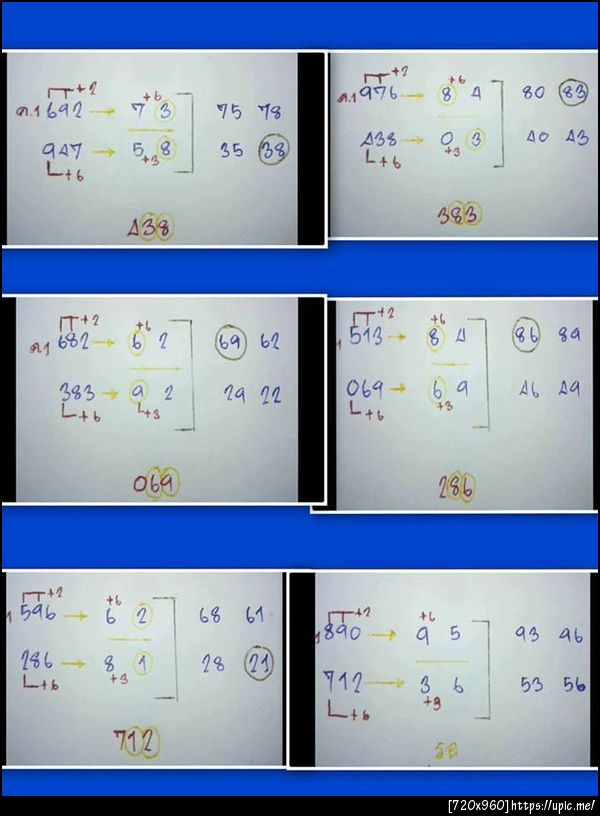 +2
ค.1 692 → 7 3 +6 75 78
947 → 5 8 +3 35 38
+6
438
+2
ค.1 976 → 8 4 +6 80 83
438 → 0 3 +3 40 43
+6
383
+2
ค.1 682 → 6 2 +6 69 62
383 → 9 2 +3 29 22
+6
069
+2
1 513 → 8 4 +6 86 89
069 → 6 9 +3 46 49
+6
286
+2
1 596 → 6 2 +6 68 61
286 → 8 1 +3 28 21
+6
712
+2
1 890 → 9 5 +6 93 96
712 → 3 6 +3 53 56
+6
[720x960] https://upic.me/